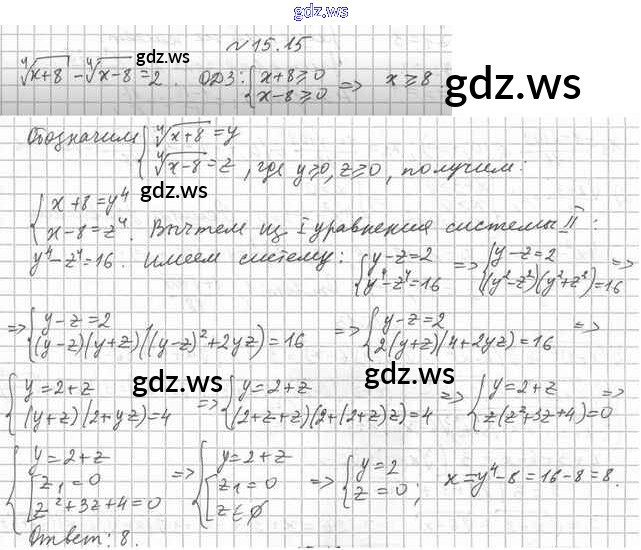 gdz.ws
№15.15
⁴√(x+8) - ⁴√(x-8) = 2. ОДЗ: { x+8≥0 ; x-8≥0 => x ≥ 8
gdz.ws
gdz.ws
Обозначим { ⁴√(x+8) = y ; ⁴√(x-8) = z , где y≥0, z≥0, получим:
gdz.ws
{ x+8=y⁴ ; x-8=z⁴. Вычтем из I уравнения системы II:
y⁴-z⁴=16. Имеем систему: { y-z=2 ; y⁴-z⁴=16 => { y-z=2 ; (y²-z²)(y²+z²)=16 =>
=> { y-z=2 ; (y-z)(y+z)((y-z)²+2yz)=16 => { y-z=2 ; 2(y+z)(4+2yz)=16 =>
gdz.ws
gdz.ws
{ y=2+z ; (y+z)(2+yz)=4 => { y=2+z ; (2+z+z)(2+(2+z)z)=4 => { y=2+z ; z(z²+3z+4)=0 =>
{ y=2+z ; [ z₁=0 ; z²+3z+4=0 => { y=2+z ; [ z₁=0 ; z∈∅ => { y=2 ; z=0; x=y⁴-8=16-8=8.
Ответ: 8.